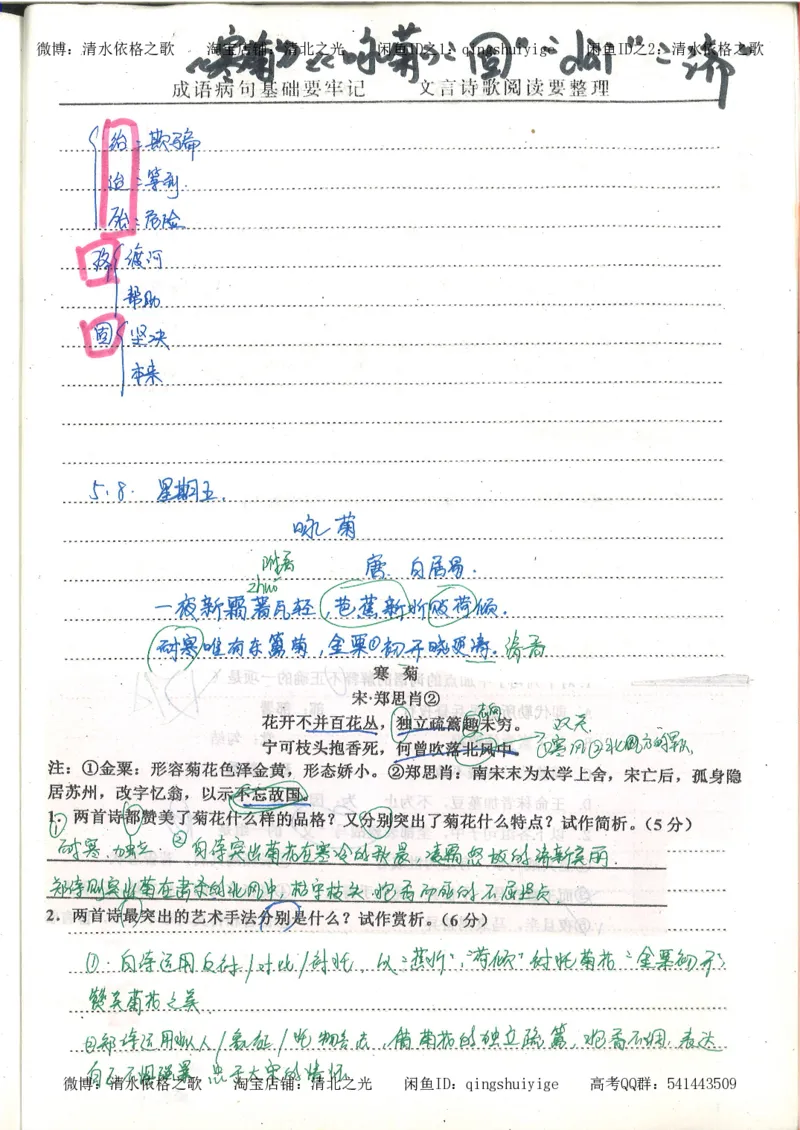 微博：清水依格之歌 淘宝店铺：清北之光 闲鱼ID之1：qingshuiyige 闲鱼ID之2：清水依格之歌
“寒菊” 咏菊 固“ “dai” 济
成语病句基础要牢记 文言诗歌阅读要整理
绐：欺骗
诒：等到
殆：危险
济 渡河
帮助
固 坚决
本来
5.8. 星期五.
咏菊
附着 唐. 白居易.
zhuó
一夜新霜著瓦轻，芭蕉新折败荷倾.
耐寒唯有东篱菊，金粟①初开晓更清. 清香
寒 菊
宋·郑思肖②
花开不并百花丛，独立疏篱趣未穷。 双关
宁可枝头抱香死，何曾吹落北风中。 ①寒风②北方的
注：①金粟：形容菊花色泽金黄，形态娇小。②郑思肖：南宋末为太学上舍，宋亡后，孤身隐
居苏州，改字忆翁，以示不忘故国。
1．两首诗都赞美了菊花什么样的品格？又分别突出了菊花什么特点？试作简析。（5 分）
① 耐寒，独立. ② 白诗突出菊花在寒冷的秋晨，凌霜怒放的清新美丽.
郑诗则突出菊在肃杀的北风中，枯守枝头，抱香而死的不屈特点
2．两首诗最突出的艺术手法分别是什么？试作赏析。（6 分）
①. 白诗运用反衬/对比/衬托，以“蕉折”，“荷倾”衬托菊花“金粟初开”
赞美菊花之美
②郑诗运用拟人/象征/托物言志，借菊花的独立疏篱，抱香不凋，表达
自己不惧强暴 忠于大宋的情怀
微博：清水依格之歌 淘宝店铺：清北之光 闲鱼ID：qingshuiyige 高考QQ群：541443509